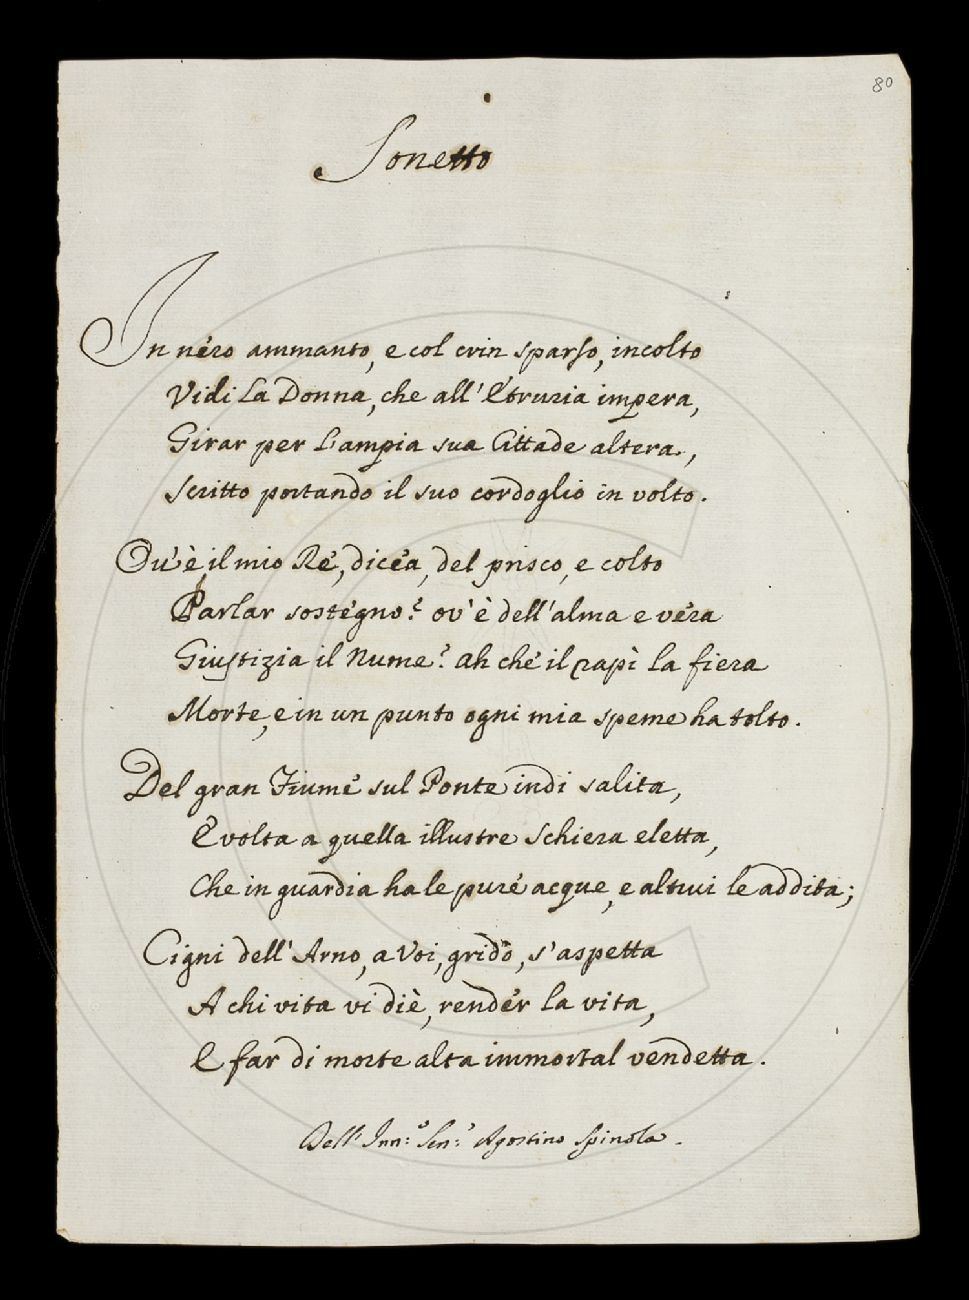 80
Sonetto
In nero ammanto, e col crin sparso, incolto
Vidi La Donna, che all'Etruria impera,
Girar per L'ampia sua Cittade altera,
Scritto portando il suo cordoglio in volto.
Ou'è, il mio Rè, dicéa, del prisco, e colto
Parlar sostégno? ov'è dell'alma e véra
Giustizia il Nume? ah ché il rapì la fiera
Morte, e in un punto ogni mia speme ha tolto.
Del gran Fiume sul Ponte indi salita,
E volta a quella illustre Schiera eletta,
Che in guardia ha le puré acque, e altrui le addita;
Cigni dell'Arno, a Voi, gridò, s'aspetta
A chi vita vi diè, rendér la vita,
E far di morte alta immortal vendetta.
Dell' Inn:° Sen:° Agostino Spinola.